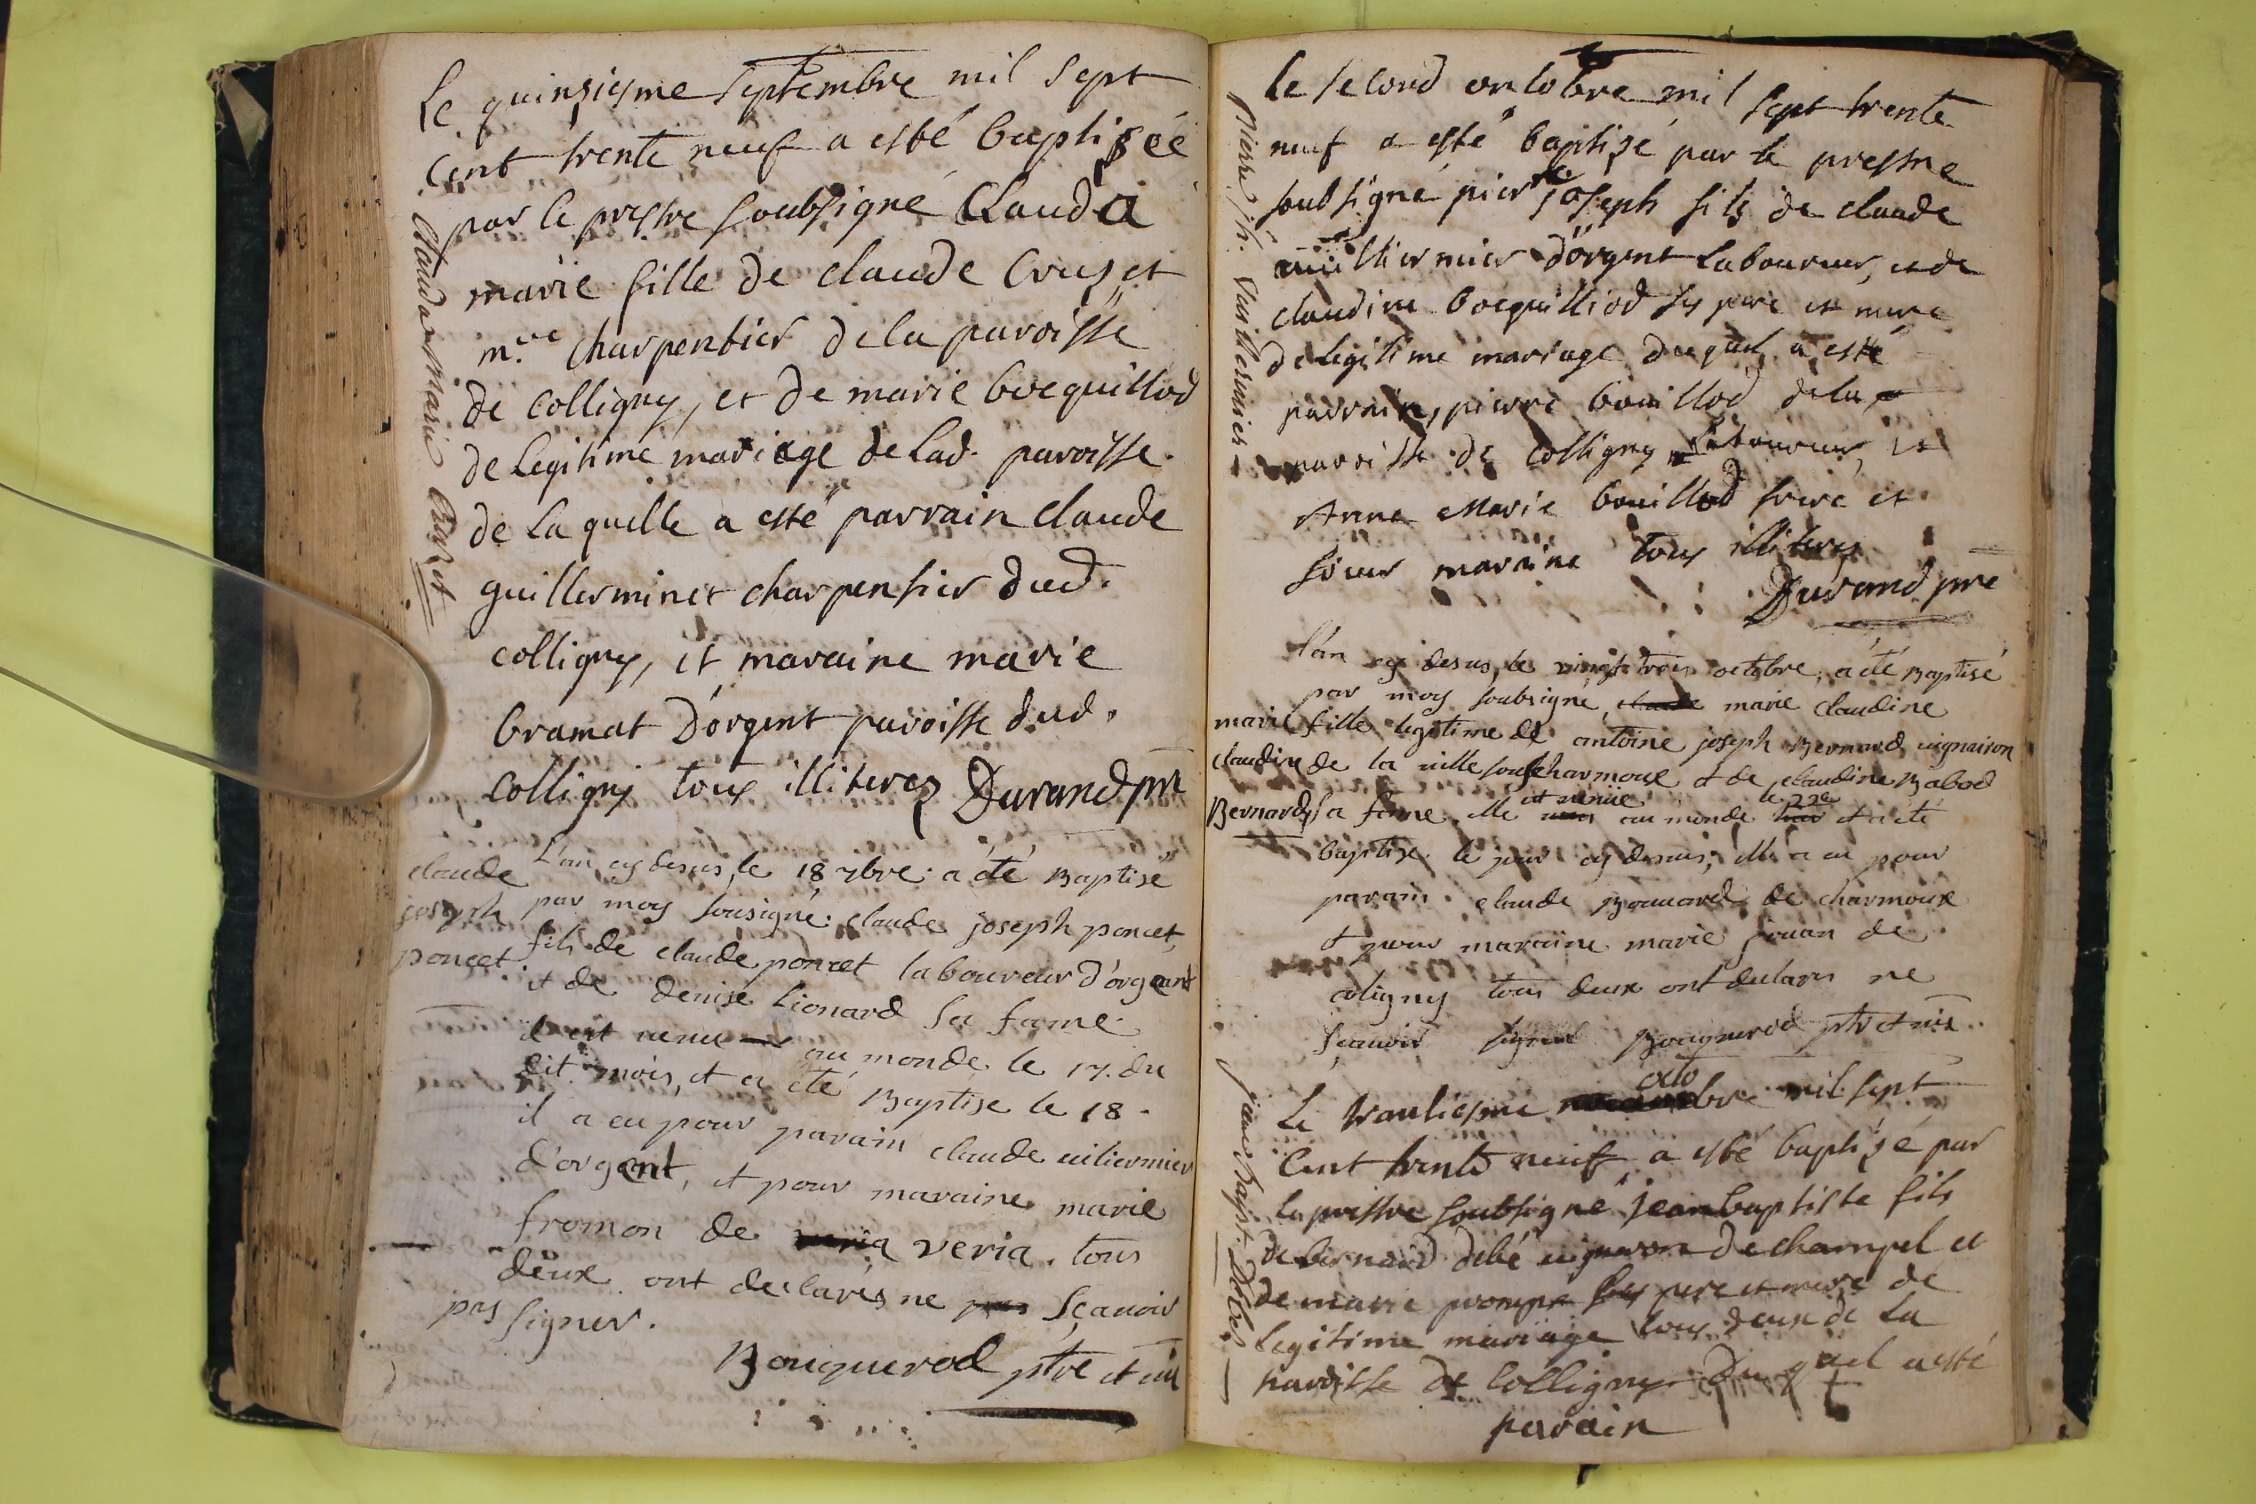 Le quinziesme septembre mil sept
Cent trente neuf a esté baptizée
par le prestre soubsigné Clauda
marie fille de claude Cruzet
m.re charpentier de la paroisse
de colligny, et de marie bocquillod
de legitime mariage de lad. paroisse.
de la quelle a esté parrain claude
guillerminet charpentier dud.
colligny, et maraine marie
bramat D'orgent paroisse dud.
colligny tous illiterez Durand pre
Clauda Marie Cruzet
claude
joseph
poncet
L'an cy desus, le 18 7bre. a été Baptisé
par moy sousigné. claude joseph poncet,
fils de claude poncet laboureur d'orgeant
et de denise Lionard sa fame.
il est venu au monde le 17. du
dit mois, et a été Baptise le 18.
il a eu pour parain claude uiliermier
d'orgent, et pour maraine marie
fromon de veria. tous
deux ont declarés ne sçauoir
pas signer.
Bouquerod ptre et uic
Pierre jh. Vuillermier
le second octobre mil sept trente
neuf a esté baptizé par le prestre
soubsigné pierre joseph fils de claude
vuilliermier d'orgent Laboureur, et de
claudine bocquilliod ses pere et mere
de legitime mariage duquel a esté
parrain, pierre bouillod de la
paroisse de colligny Laboureur, et
Anne Marie bouillod frere et
soeur maraine tous illiteres
Durand pre
marie
claudine
Bernard
l'an cy desus, le vingt trois octobre, a été Baptisé
par moy soubsigné, marie claudine
fille legitime de antoine joseph Bernard uignairon
de la uille sous charmoux et de claudine Babod
sa femme, elle est venüe au monde le 22e et a été
baptize le jour cy desus; elle a eu pour
parain claude Bouuard de charmoux
et pour maraine marie jouan de
coligny tous deux ont declarés ne
sçauoir signer Bouquerod ptre et uic.
jean Bapt. Debé
Le trantiesme octobre mil sept
Cent trente neuf a esté baptizé par
le prestre soubsigné jean baptiste fils
de bernard debé uigneron de champel et
de marie prompt ses pere et mere de
legitime mariage tous deux de la
paroisse de Colligny Du quel a esté
parain